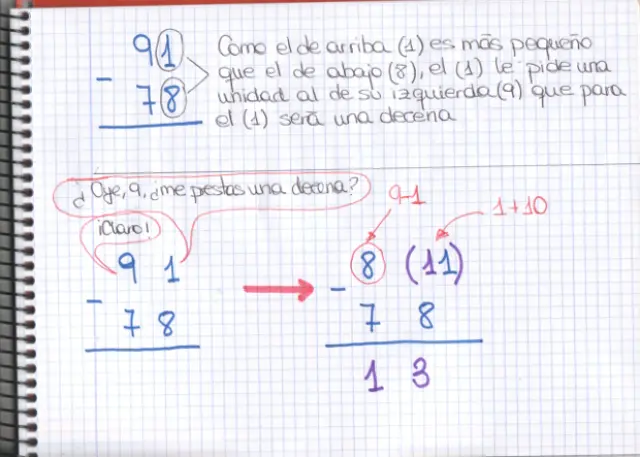 91 Como el de arriba (1) es más pequeño
- 78 que el de abajo (8), el (1) le pide una
unidad al de su izquierda (9) que para
el (1) será una decena
¿Oye, 9, ¿me prestas una decena?
¡Claro!
9-1
1+10
9 1
- 7 8
8 (11)
- 7 8
1 3